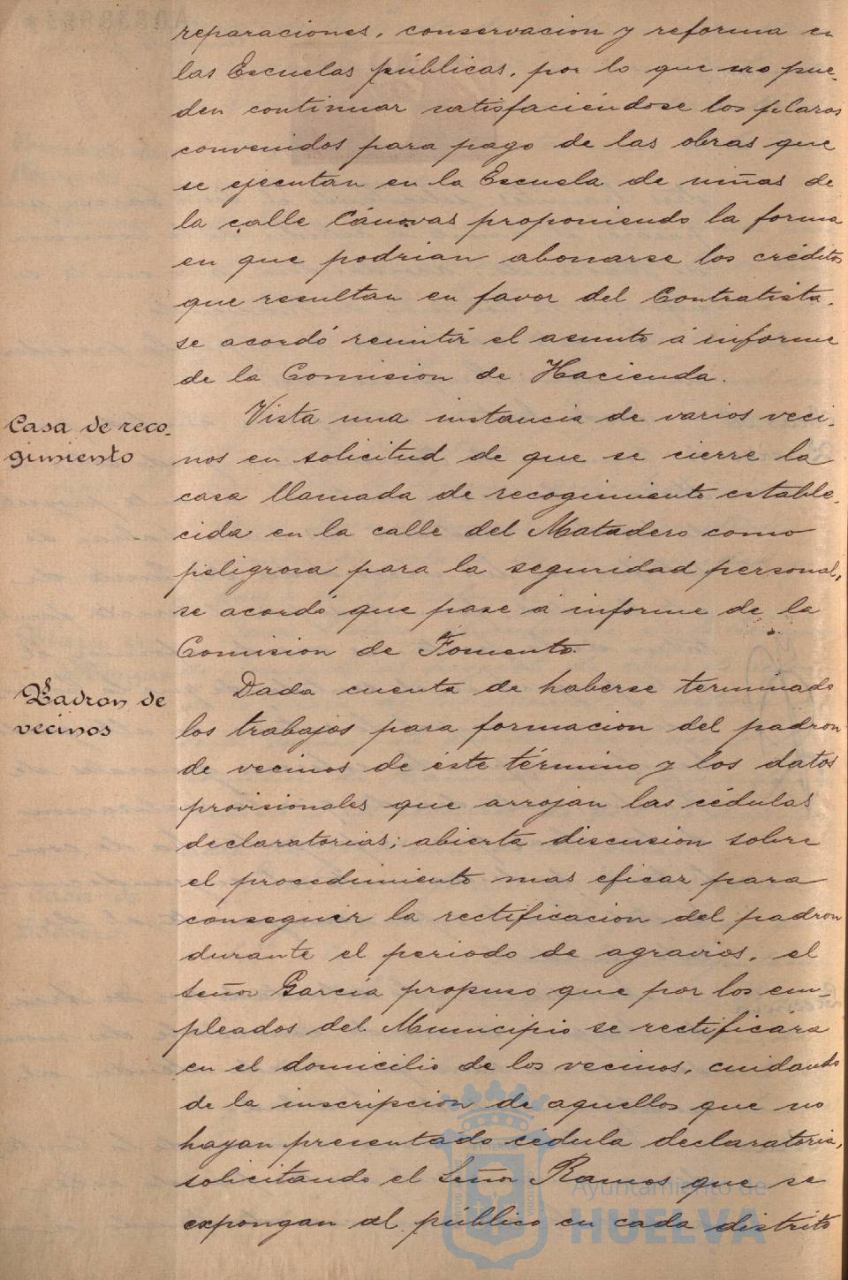 reparaciones, conservacion y reforma en
las Escuelas públicas, por lo que no pue-
den continuar satisfaciéndose los plazos
convenidos para pago de las obras que
se ejecutan en la Escuela de niñas de
la calle Cánovas proponiendo la forma
en que podrian abonarse los créditos
que resultan en favor del Contratista.
se acordó remitir el asunto á informe
de la Comision de Hacienda.
Casa de reco-
gimiento
Vista una instancia de varios veci-
nos en solicitud de que se cierre la
casa llamada de recogimiento estable-
cida en la calle del Matadero como
peligrosa para la seguridad personal,
se acordó que pase á informe de la
Comision de Fomento.
Padron de
vecinos
Dada cuenta de haberse terminado
los trabajos para formacion del padron
de vecinos de éste término y los datos
provisionales que arrojan las cédulas
declaratorias; abierta discusion sobre
el procedimiento mas eficaz para
conseguir la rectificacion del padron
durante el periodo de agravios, el
señor García propuso que por los em-
pleados del Municipio se rectificara
en el domicilio de los vecinos, cuidando
de la inscripcion de aquellos que no
hayan presentado cédula declaratoria,
solicitando el Señor Ramos que se
expongan al público en cada distrito
Ayuntamiento de
HUELVA